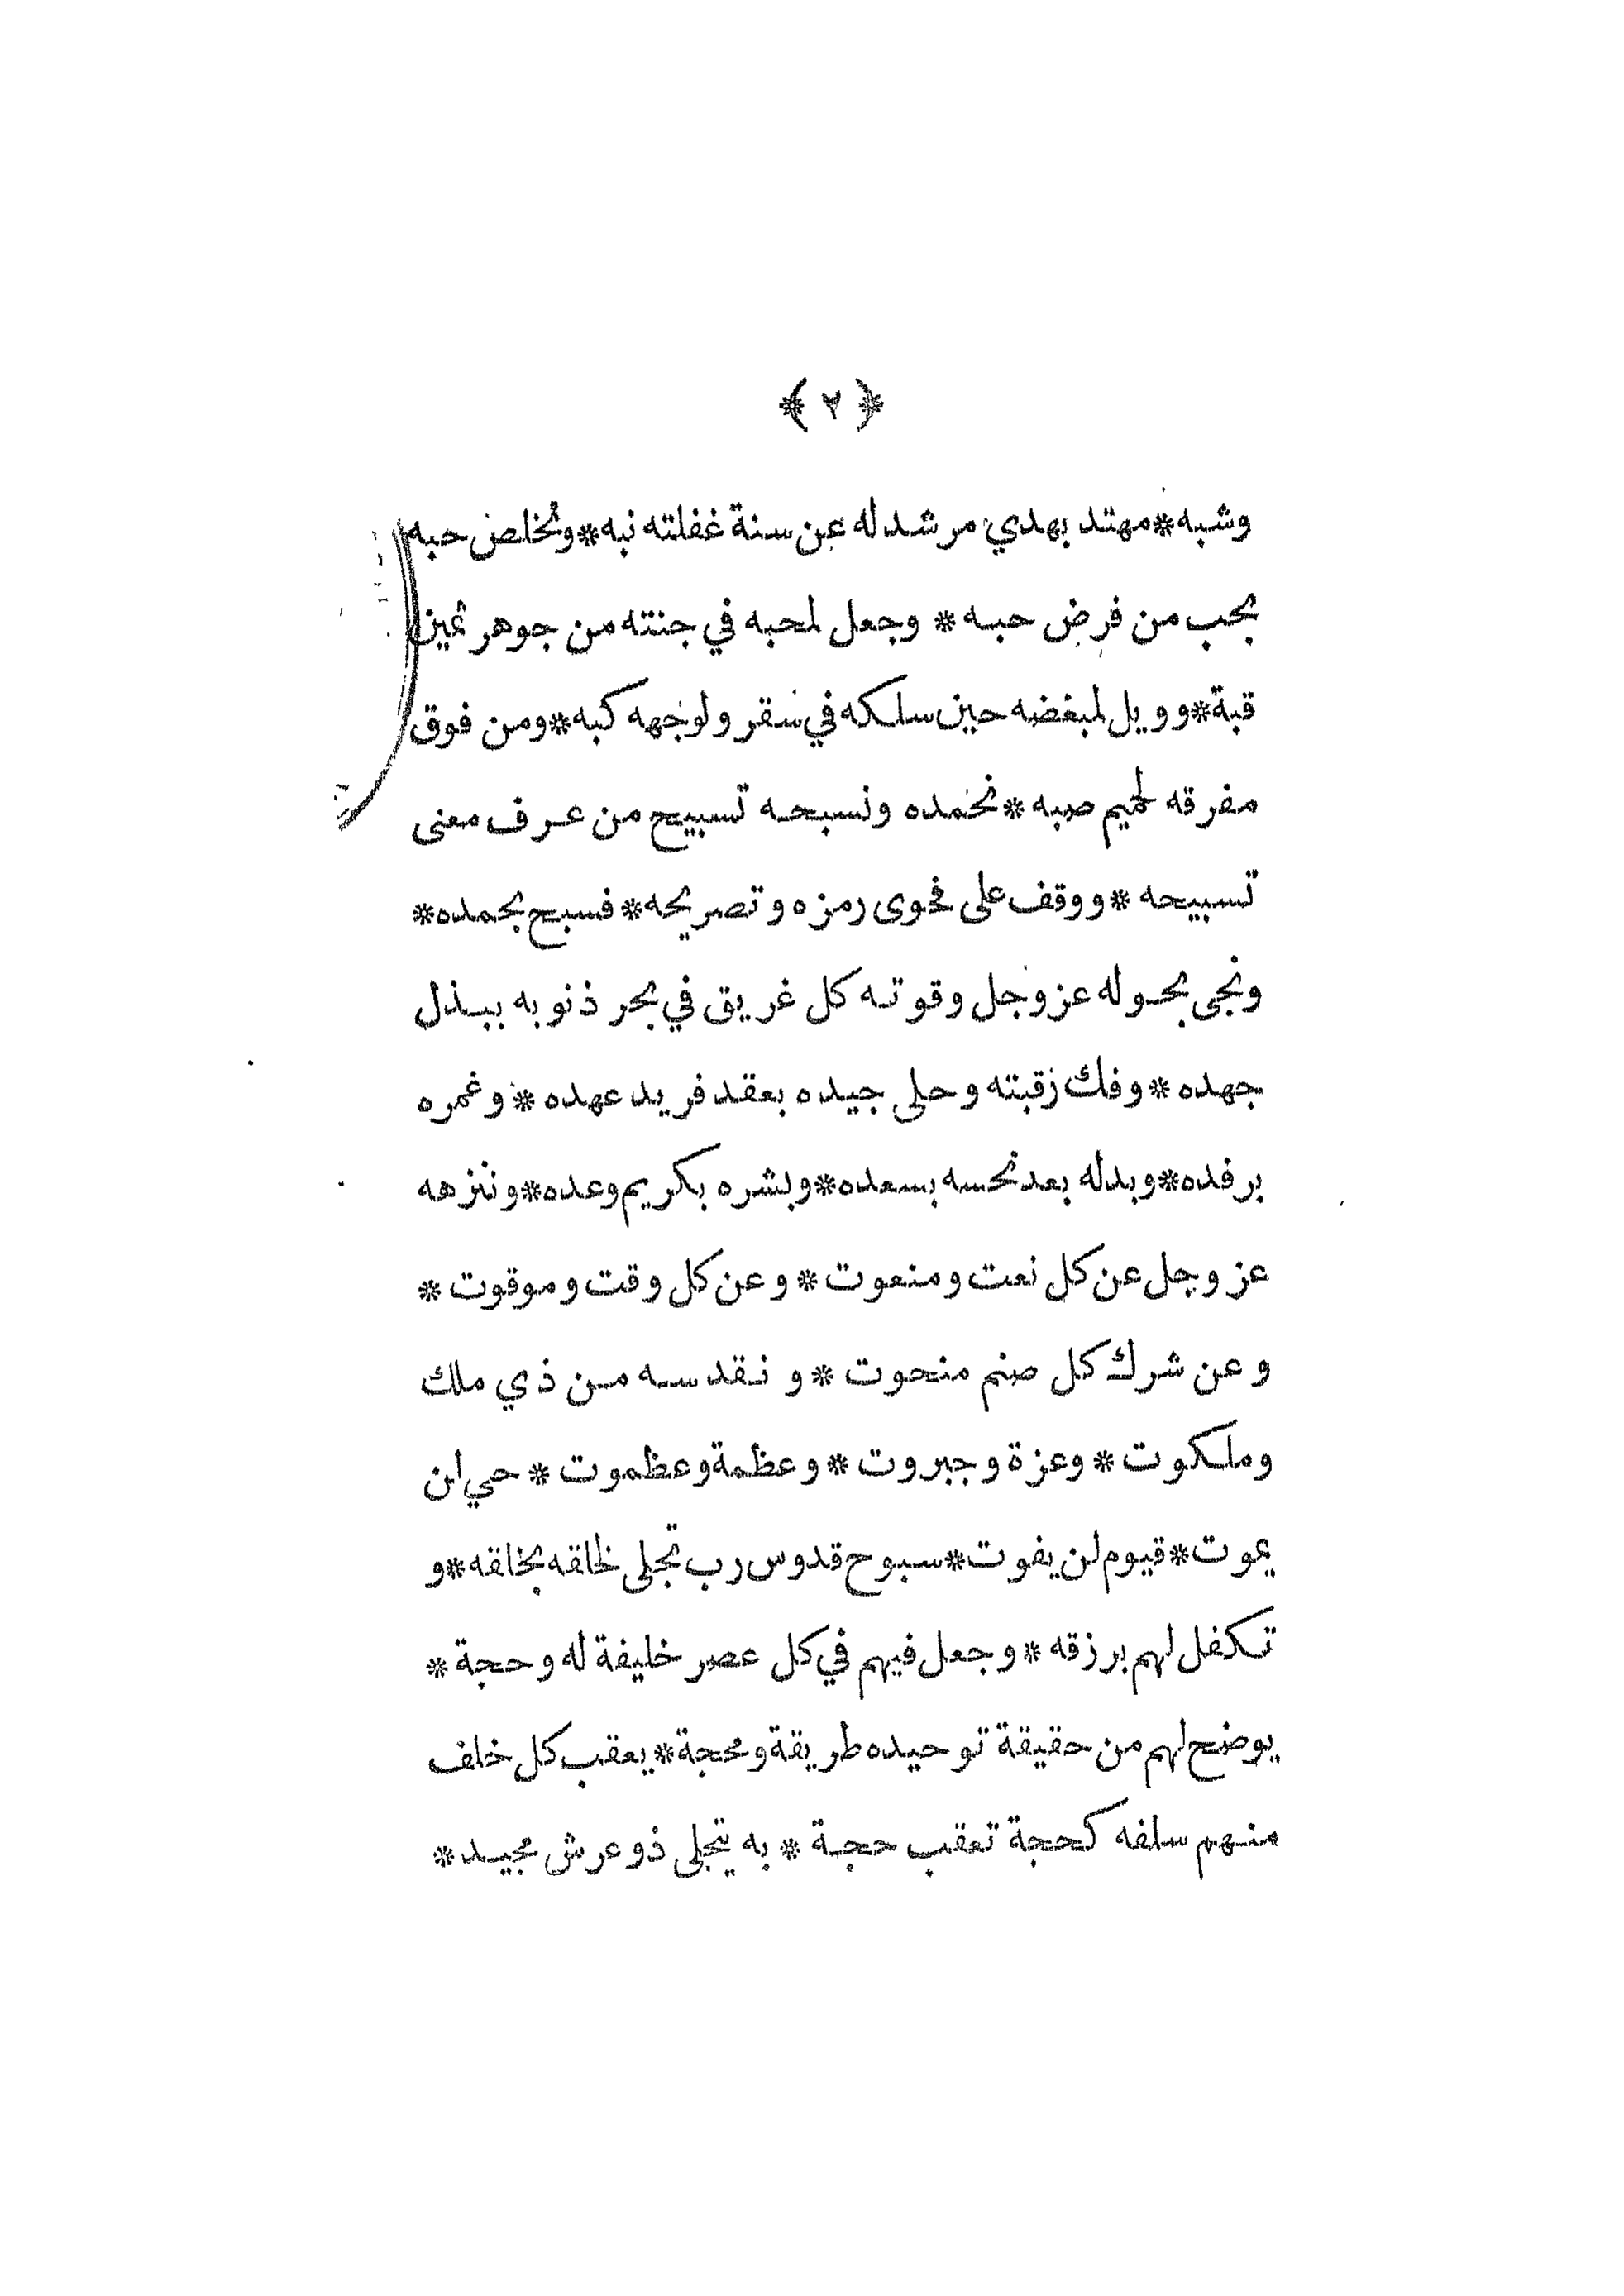 ﴿ ٢ ﴾
وشبه * مهتد بهدي مرشد له عن سنة غفلته نبه * ونخلص حبه
بحب من فرض حبه * وجعل لمحبه في جنته من جوهر ثمين
قبة * وويل لمبغضه حين سلكه في سقر ولوجهه كبه * ومن فوق
مفرقه لحميم صبه * نحمده ونسبحه تسبيح من عرف معنى
تسبيحه * ووقف على فحوى رمزه وتصريحه * فسبح بحمده *
ونجى بحوله عز وجل وقوته كل غريق في بحر ذنوبه ببذل
جهده * وفك رقبته وحلى جيده بعقد فريد عهده * وغمره
برفده * وبدله بعد نحسه بسعده * وبشره بكريم وعده * وننزهه
عز وجل عن كل نعت ومنعوت * وعن كل وقت وموقوت *
وعن شرك كل صنم منحوت * ونقدسه من ذي ملك
وملكوت * وعزة وجبروت * وعظمة وعظموت * حي لن
يموت * قيوم لن يفوت * سبوح قدوس رب تجلى لخلقه بخلقه * و
تكفل لهم برزقه * وجعل فيهم في كل عصر خليفة له وحجة *
يوضح لهم من حقيقة توحيده طريقة ومحجة * يعقب كل خلف
منهم سلفه كحجة تعقب حجة * به يتجلى ذو عرش مجيد *